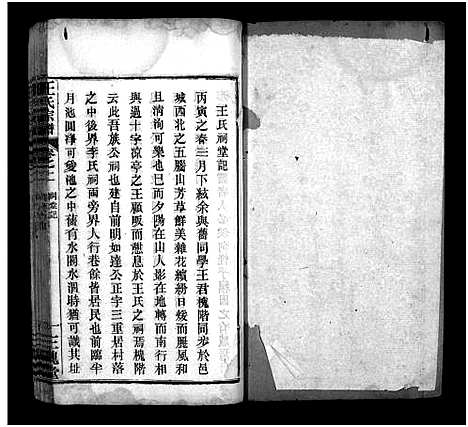 王氏祠堂記
丙寅之春三月下絃余與舊同學王君槐階同步於邑
城西北之五腦山芳草鮮美雜花繽紛日煖而麗風和
且清洵可樂也已而夕陽在山人影在地轉而南行相
與過十字涼亭之王顧畈而憩息於王氏之祠焉槐階
云此吾族公祠也建自前明如達公正字三重居村落
之中後界李氏祠兩旁界人行巷餘皆居民也前臨半
月池圓淨可愛池之中猶有水閣水涸時猶可識其址
王氏宗譜
卷之二
祠堂記
三槐堂